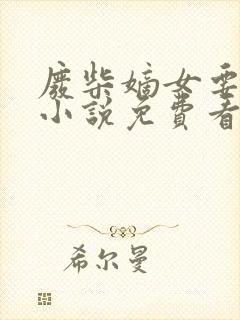 廢柴嫡女要
小說免費看
希尔曼